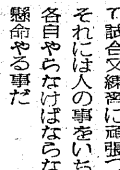 で試合又練習に頑張つ
それには人の事をいち
各自やらなければならな
懸命やる事だ